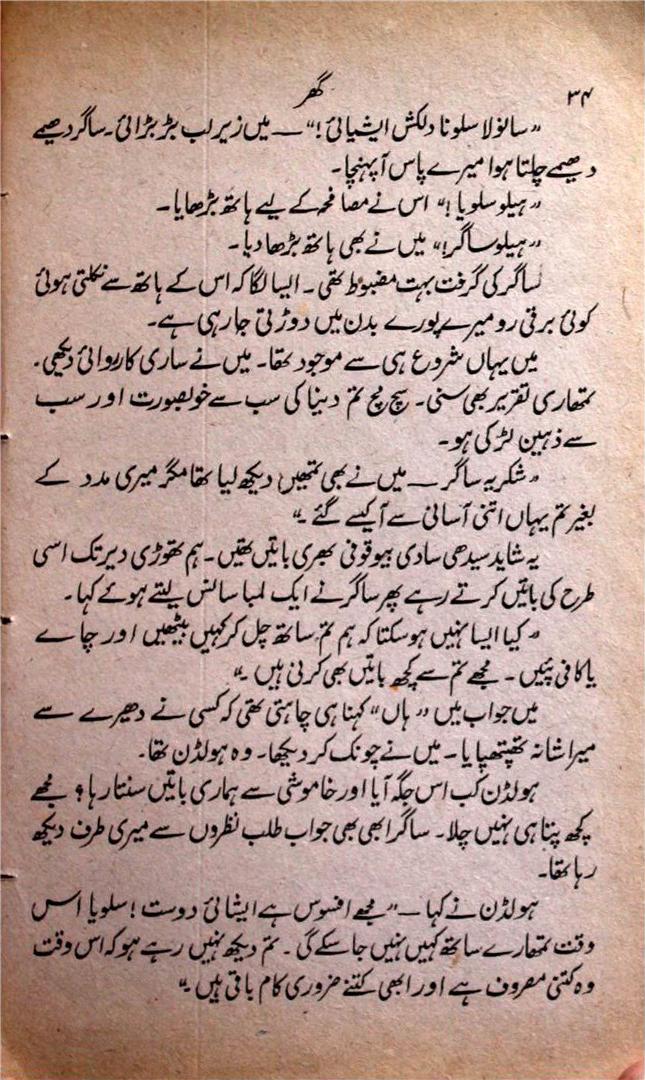 ۳۴
گھر
”سانولا سلونا دلکش ایشیائی!“ — میں زیر لب بڑبڑائی۔ ساگر دھیمے
دھیمے چلتا ہوا میرے پاس آپہنچا۔
”ہیلو سلویا!“ اس نے مصافحہ کے لیے ہاتھ بڑھایا۔
”ہیلو ساگر!“ میں نے بھی ہاتھ بڑھا دیا۔
ساگر کی گرفت بہت مضبوط تھی۔ ایسا لگا کہ اس کے ہاتھ سے نکلتی ہوئی
کوئی برقی رو میرے پورے بدن میں دوڑتی جارہی ہے۔
میں یہاں شروع ہی سے موجود تھا۔ میں نے ساری کارروائی دیکھی۔
تمھاری تقریر بھی سنی۔ سچ مچ تم دنیا کی سب سے خوبصورت اور سب
سے ذہین لڑکی ہو۔
”شکریہ ساگر — میں نے بھی تمھیں دیکھ لیا تھا مگر میری مدد کے
بغیر تم یہاں اتنی آسانی سے آ کیسے گئے۔“
یہ شاید سیدھی سادی بیوقوفی بھری باتیں تھیں۔ ہم تھوڑی دیر تک اسی
طرح کی باتیں کرتے رہے پھر ساگر نے ایک لمبا سانس لیتے ہوئے کہا۔
”کیا ایسا نہیں ہوسکتا کہ ہم تم ساتھ چل کر کہیں بیٹھیں اور چاے
یا کافی پئیں۔ مجھے تم سے کچھ باتیں بھی کرنی ہیں۔“
میں جواب میں ”ہاں“ کہنا ہی چاہتی تھی کہ کسی نے دھیرے سے
میرا شانہ تھپتھپایا۔ میں نے چونک کر دیکھا۔ وہ ہولڈن تھا۔
ہولڈن کب اس جگہ آیا اور خاموشی سے ہماری باتیں سنتا رہا؟ مجھے
کچھ پتا ہی نہیں چلا۔ ساگر ابھی بھی جواب طلب نظروں سے میری طرف دیکھ
رہا تھا۔
ہولڈن نے کہا — ”مجھے افسوس ہے ایشائی دوست! سلویا اس
وقت تمھارے ساتھ کہیں نہیں جاسکے گی۔ تم دیکھ نہیں رہے ہو کہ اس وقت
وہ کتنی مصروف ہے اور ابھی کتنے ضروری کام باقی ہیں۔“